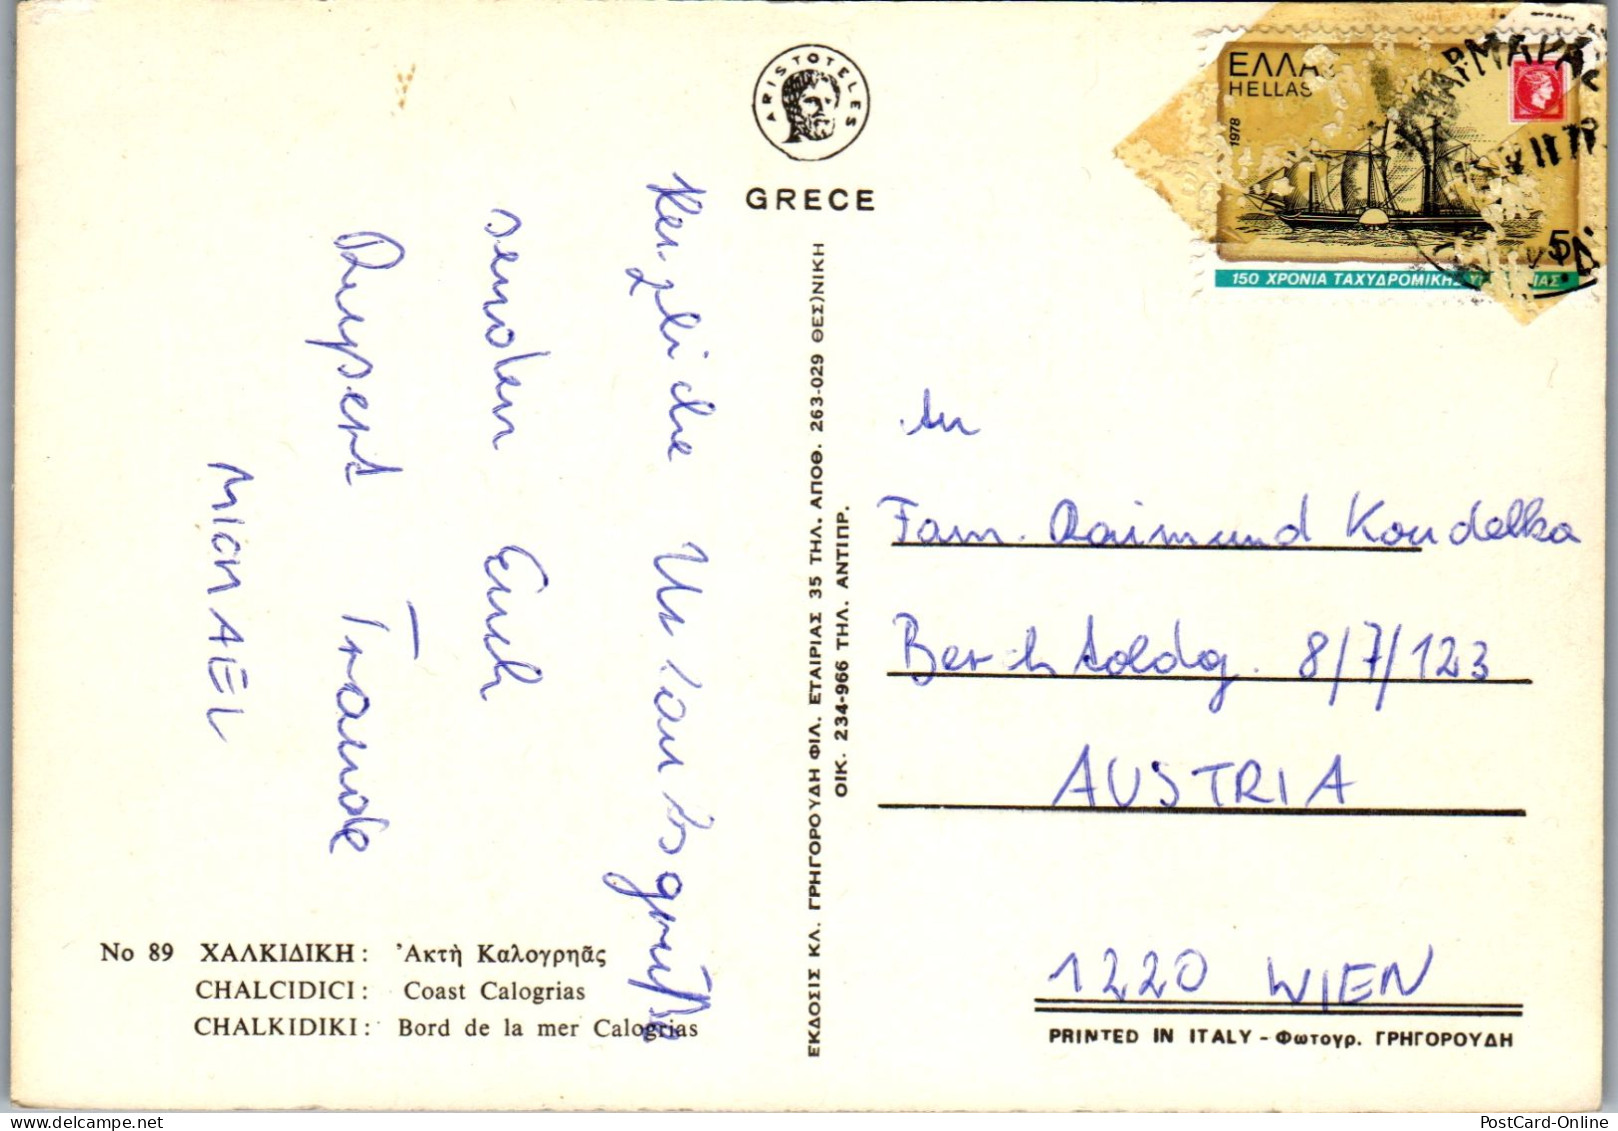 ARISTOTELES
GRECE
ΕΛΛΑ
HELLAS
1978
5
150 ΧΡΟΝΙΑ ΤΑΧΥΔΡΟΜΙΚΗΣ
Herzliche Urlaubsgrüße
senden Euch
Rupert Traude
MICHAEL
No 89 ΧΑΛΚΙΔΙΚΗ: Ἀκτὴ Καλογρηᾶς
CHALCIDICI: Coast Calogrias
CHALKIDIKI: Bord de la mer Calogrias
ΕΚΔΟΣΙΣ ΚΛ. ΓΡΗΓΟΡΟΥΔΗ ΦΙΛ. ΕΤΑΙΡΙΑΣ 35 ΤΗΛ. ΑΠΟΘ. 263-029 ΘΕΣ)ΝΙΚΗ
ΟΙΚ. 234-966 ΤΗΛ. ΑΝΤΙΠΡ.
An
Fam. Raimund Koudelka
Berchtoldg. 8/7/123
AUSTRIA
1220 WIEN
PRINTED IN ITALY - Φωτογρ. ΓΡΗΓΟΡΟΥΔΗ
PostCard-Online